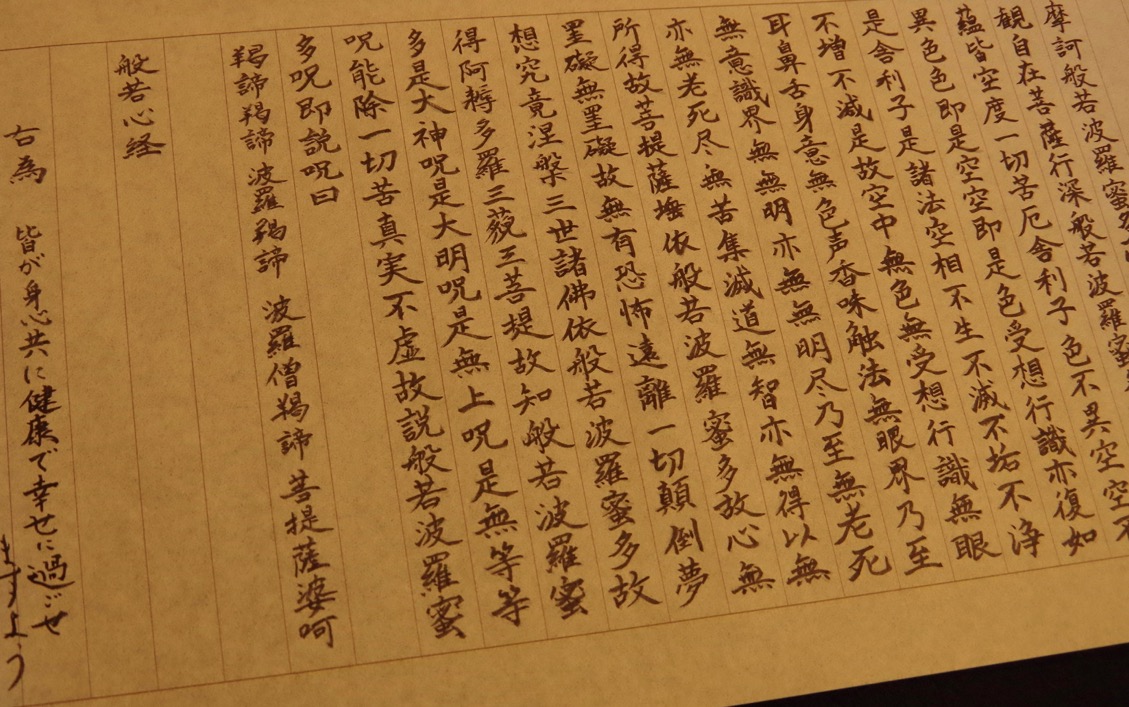 摩訶般若波羅蜜多
観自在菩薩行深般若波羅蜜
蘊皆空度一切苦厄舎利子色不異空空不
異色色即是空空即是色受想行識亦復如
是舎利子是諸法空相不生不滅不垢不浄
不増不減是故空中無色無受想行識無眼
耳鼻舌身意無色声香味触法無眼界乃至
無意識界無無明亦無無明尽乃至無老死
亦無老死尽無苦集滅道無智亦無得以無
所得故菩提薩埵依般若波羅蜜多故心無
罣礙無罣礙故無有恐怖遠離一切顛倒夢
想究竟涅槃三世諸佛依般若波羅蜜多故
得阿耨多羅三藐三菩提故知般若波羅蜜
多是大神呪是大明呪是無上呪是無等等
呪能除一切苦真実不虚故説般若波羅蜜
多呪即説呪曰
羯諦羯諦 波羅羯諦 波羅僧羯諦 菩提薩婆呵
般若心経
右為 皆が身心共に健康で幸せに過ごせ
ますよう